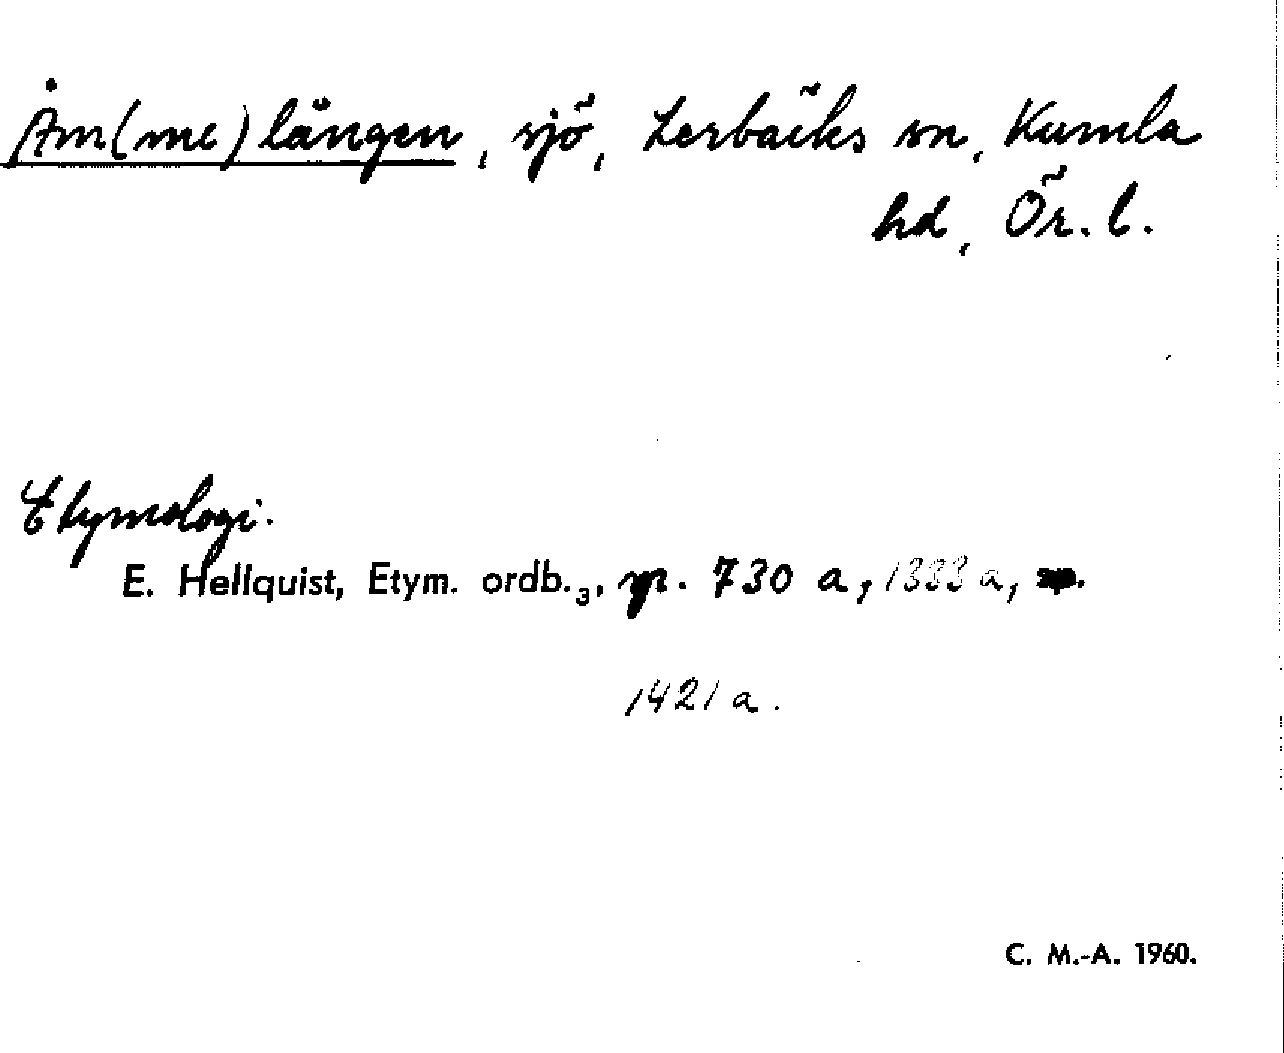 Åm(me)längen, sjö, Lerbäcks sn, Kumla
hd, Ör. l.
Etymologi.
E. Hellquist, Etym. ordb.3, sp. 730 a, 1383 a,
1421 a.
C. M.-A. 1960.